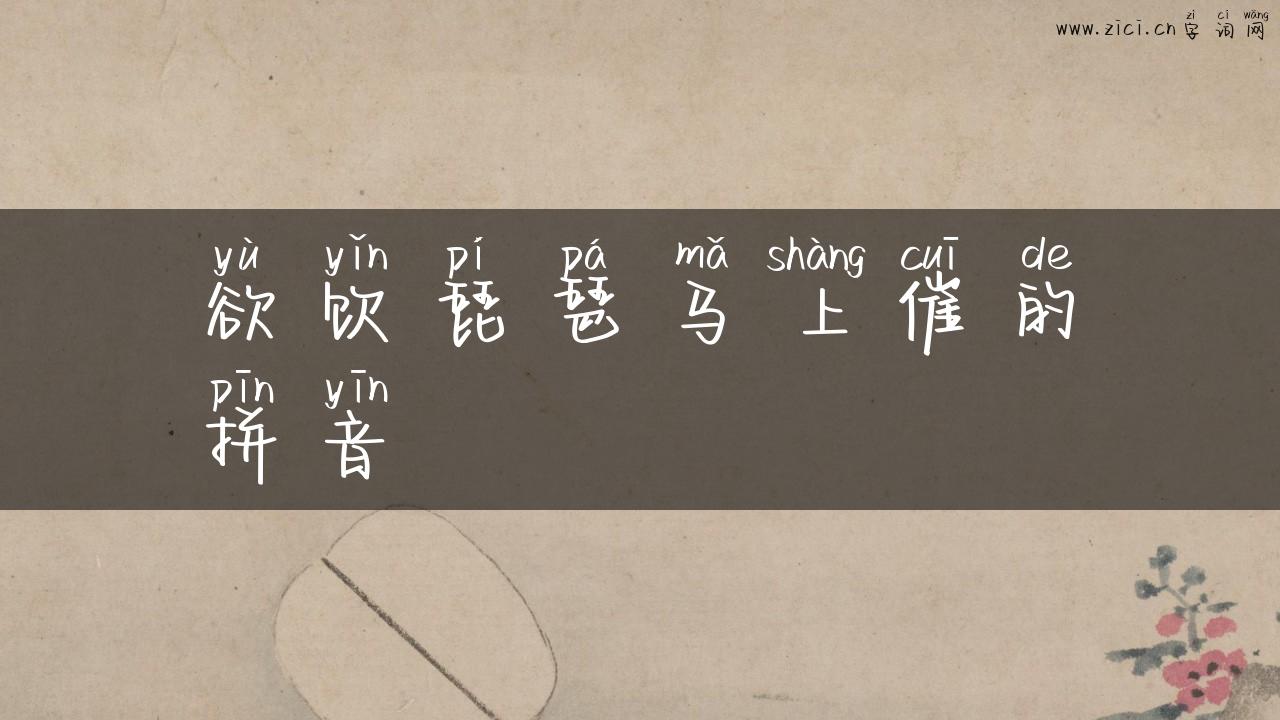 zì cí wǎng
www.zici.cn字词网
yù yǐn pí pá mǎ shàng cuī de
欲饮琵琶马上催的
pīn yīn
拼音